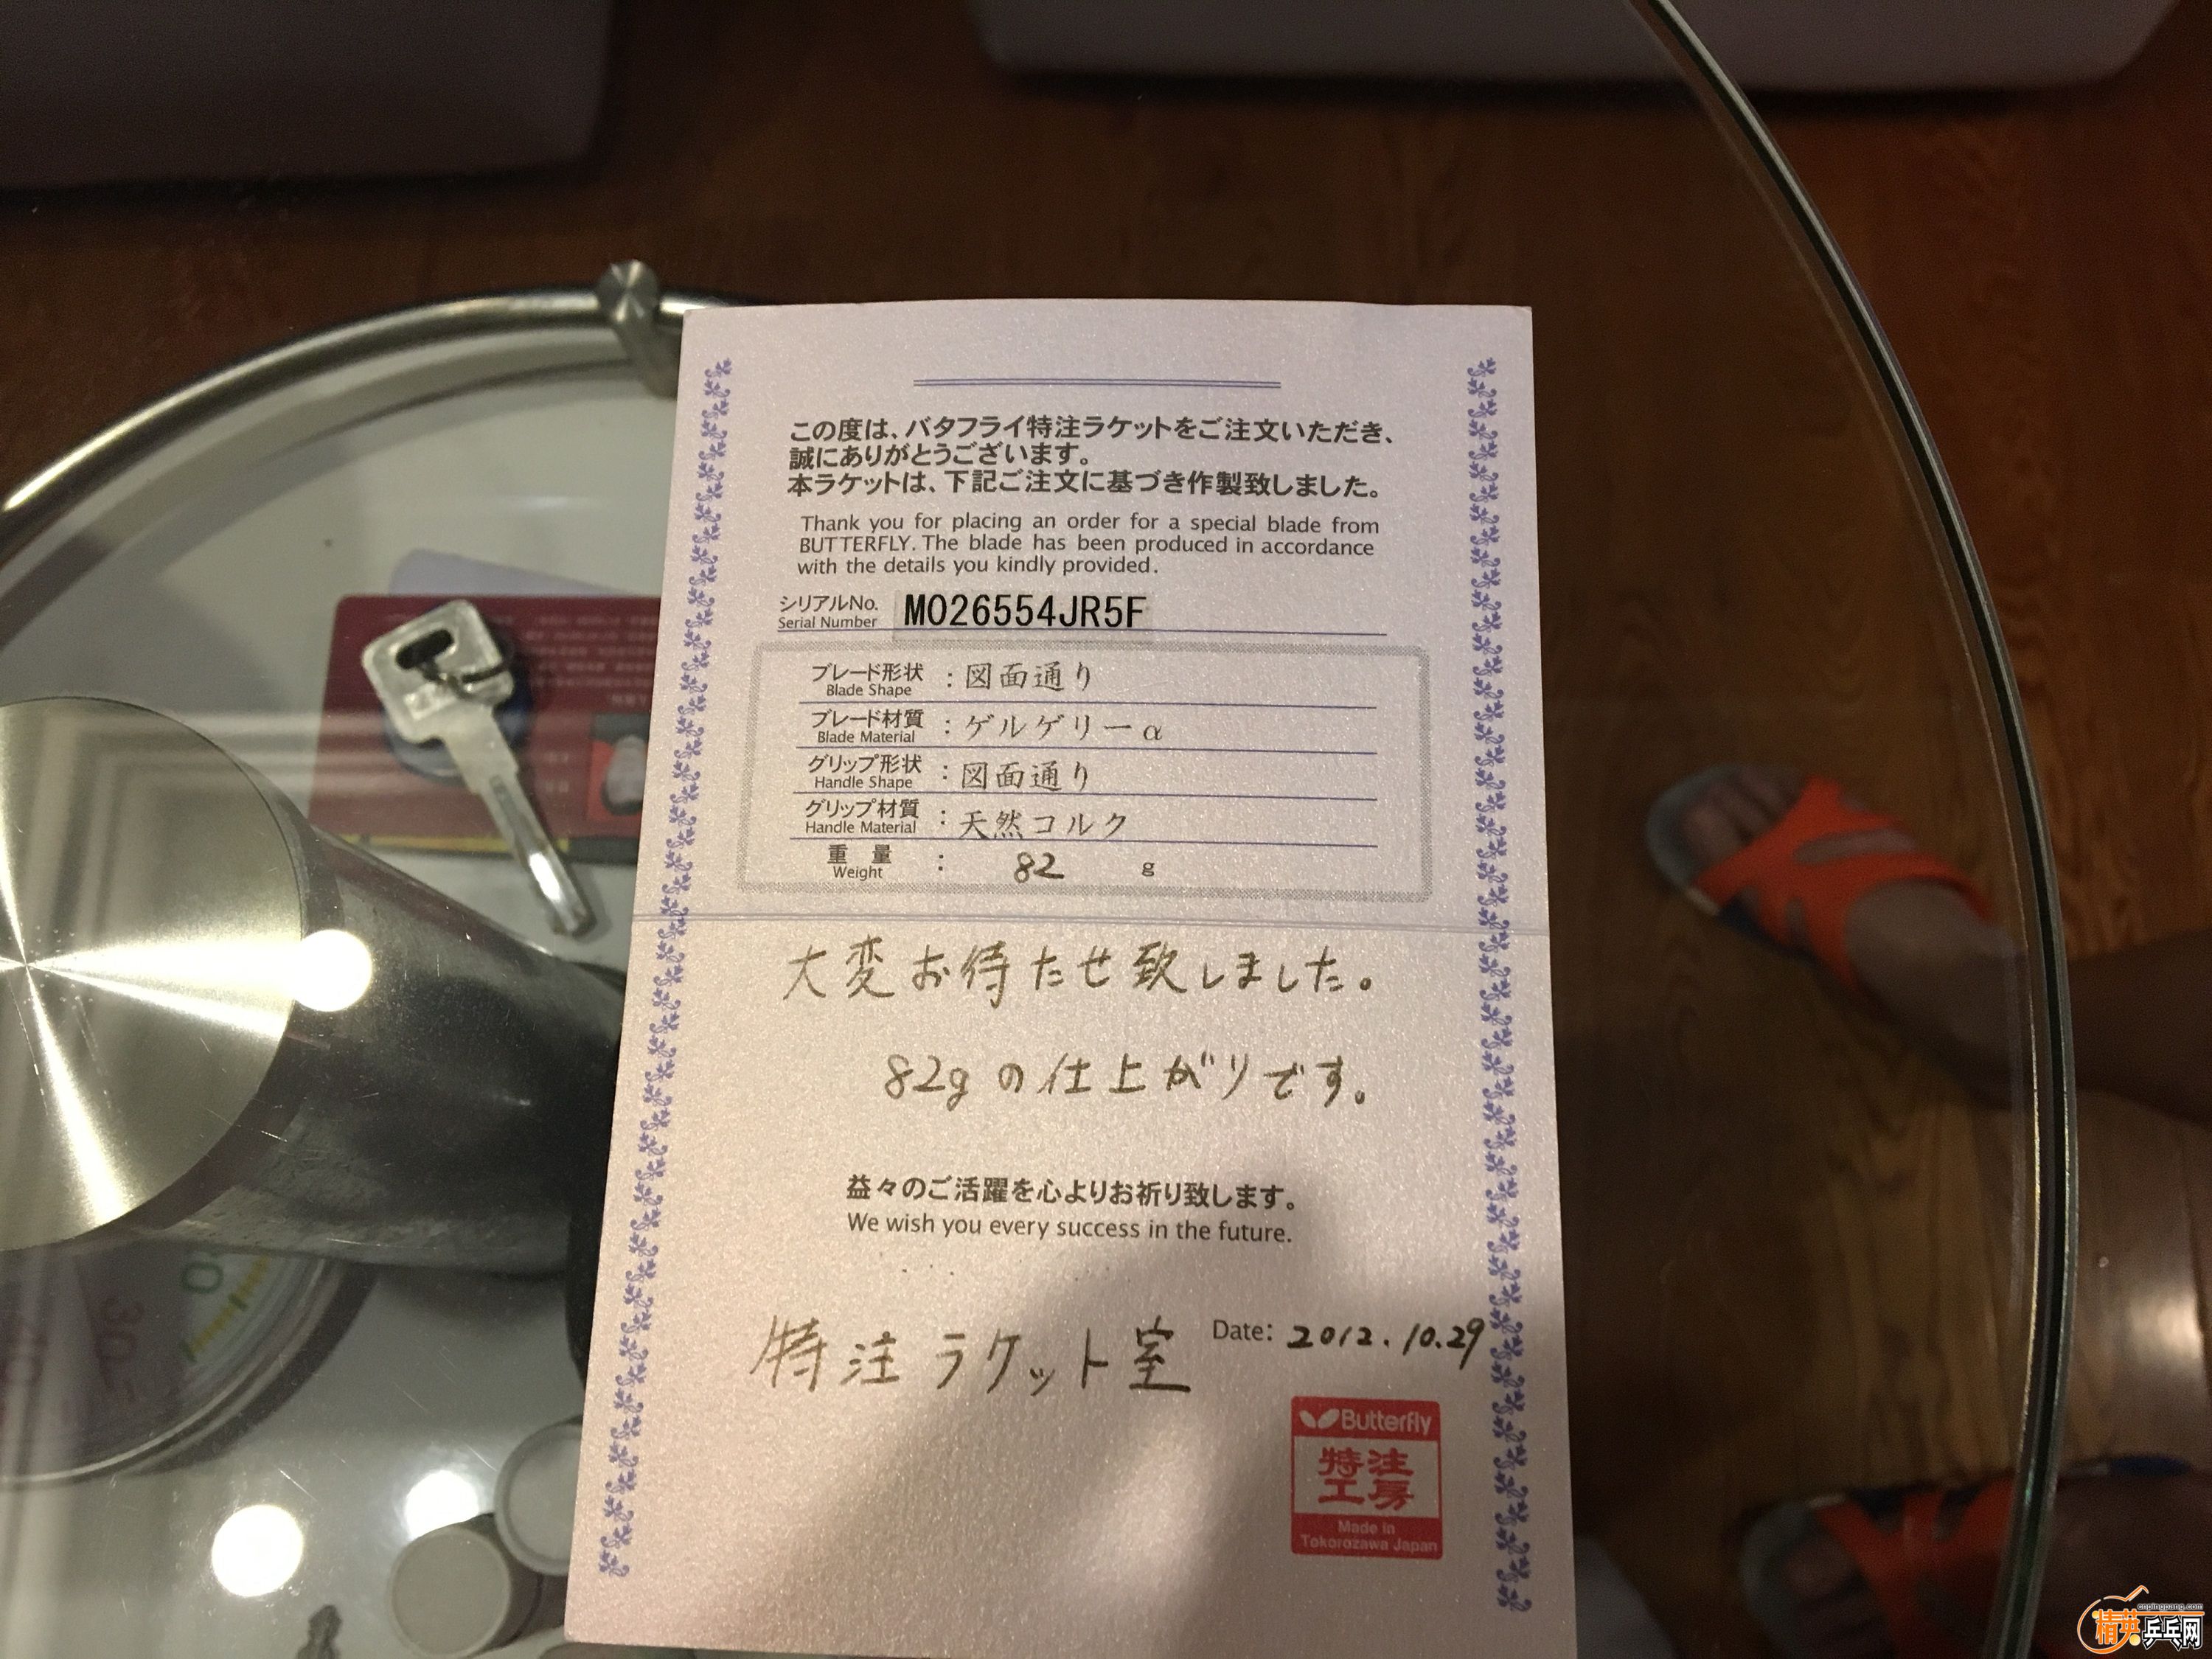 この度は、バタフライ特注ラケットをご注文いただき、
誠にありがとうございます。
本ラケットは、下記ご注文に基づき作製致しました。
Thank you for placing an order for a special blade from
BUTTERFLY. The blade has been produced in accordance
with the details you kindly provided.
シリアルNo. MO26554JR5F
Serial Number
ブレード形状 : 図面通り
Blade Shape
ブレード材質 : ゲルゲリーα
Blade Material
グリップ形状 : 図面通り
Handle Shape
グリップ材質 : 天然コルク
Handle Material
重量 : 82 g
Weight
大変お待たせ致しました。
82gの仕上がりです。
益々のご活躍を心よりお祈り致します。
We wish you every success in the future.
特注ラケット室 Date: 2012.10.29
Butterfly
特注
工房
Made in
Tokorozawa Japan
30
0
cnpingpang.com
精英乒乓网